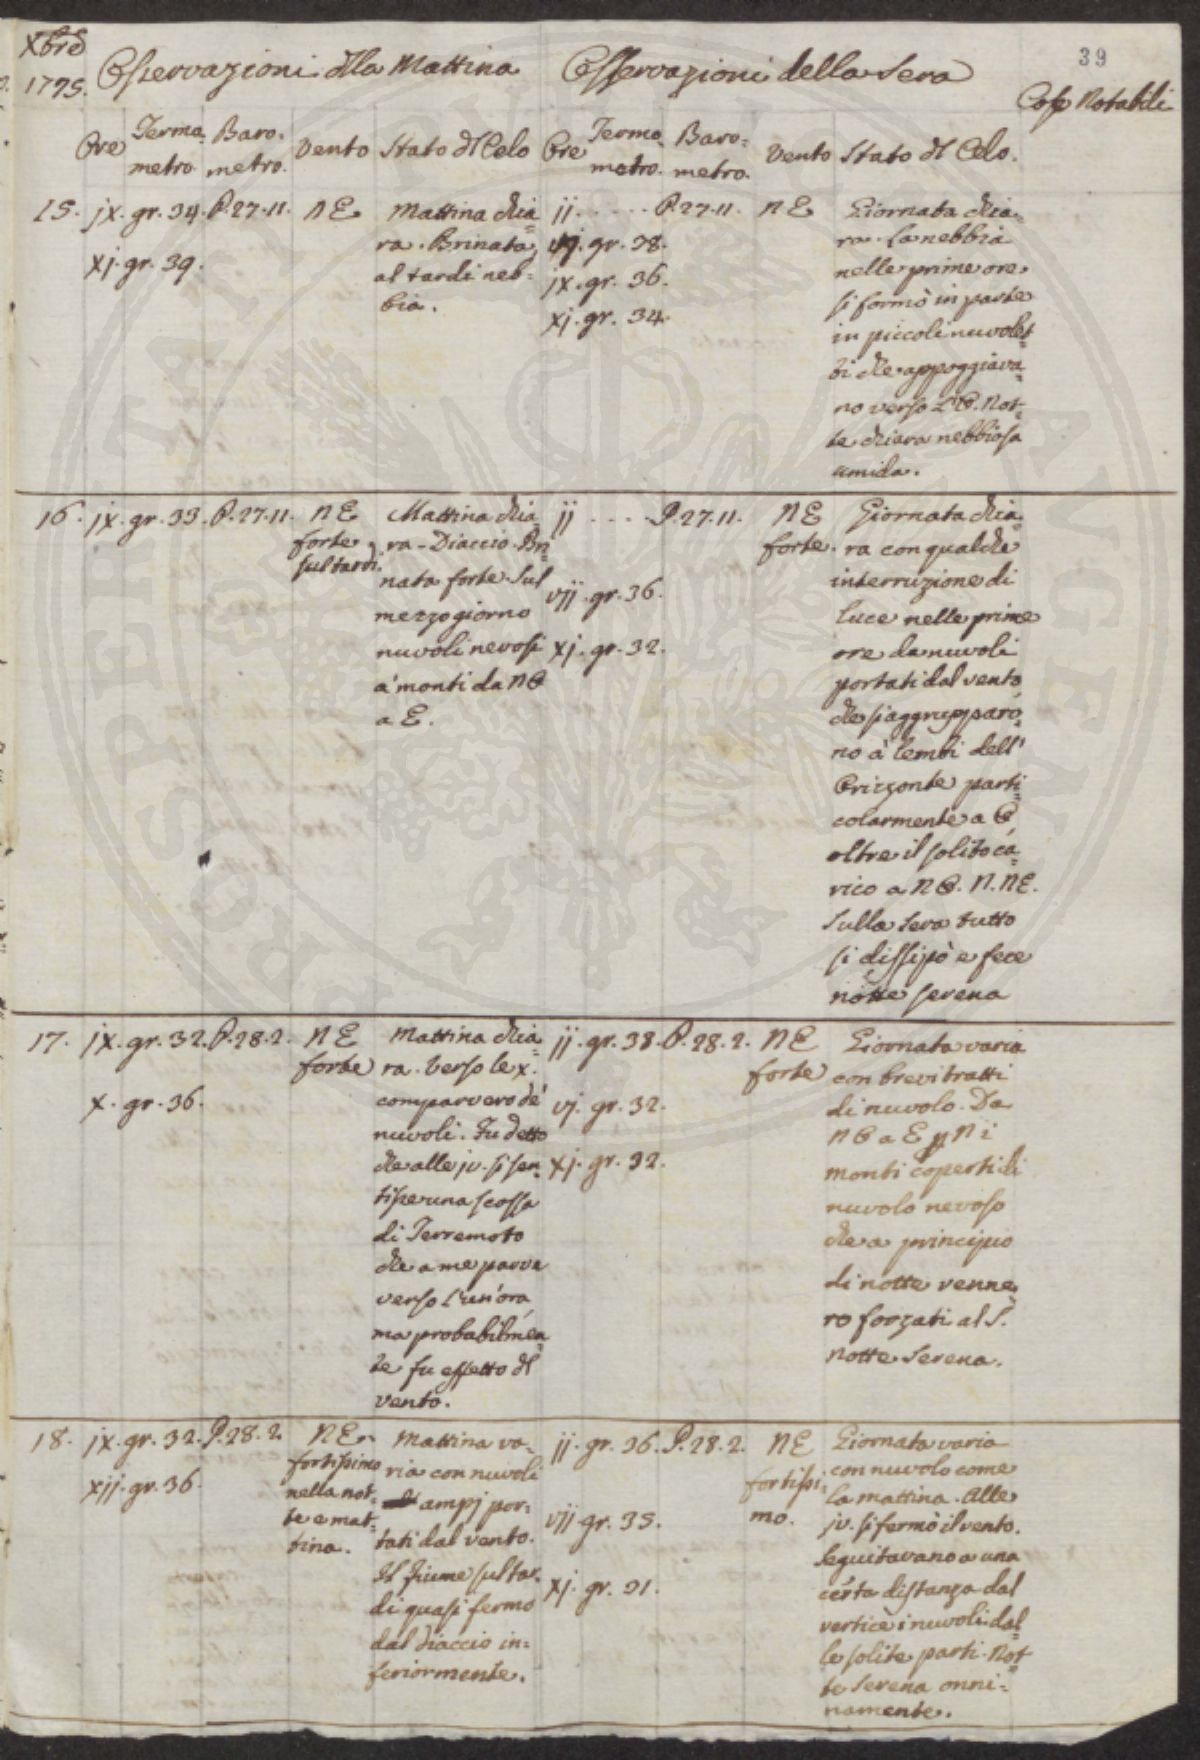 Xbre
1795.
Osservazioni dlla Mattina
Osservazioni della Sera
39
Cose Notabili
Ore
Termo
metro.
Baro.
metro.
Vento
Stato dl Celo
Ore
Termo
metro.
Baro:
metro.
Vento
Stato dl Celo.
15. jx. gr. 34. P. 27.11. NE
xj. gr. 39.
Mattina chia
ra. Brinata,
al tardi neb=
bia.
jj ..... P. 27.11. NE
vj. gr. 38.
jx. gr. 36.
xj. gr. 34.
Giornata chia=
ra. La nebbia
nelle prime ore
si formò in parte
in piccoli nuvolet
ti che appoggiava=
no verso l'O. Not=
te chiara nebbiosa
umida.
16. jx. gr. 33. P. 27.11. NE
forte
sul tardi.
Mattina chia=
ra - Diaccio. Bri
nata forte. Sul
mezzogiorno
nuvoli nevosi
a' monti da NO
a E.
jj .... P. 27.11. NE
forte.
vjj. gr. 36.
xj. gr. 32.
Giornata chia=
ra con qualche
interruzione di
luce nelle prime
ore da nuvoli
portati dal vento
che s'aggrupparo=
no a' lembi dell'
Orizzonte parti=
colarmente a O,
oltre il solito ca=
rico a NO. N. NE.
Sulla sera tutto
si dissipò e fece
notte serena
17. jx. gr. 32. P. 28.2. NE
forte
x. gr. 36.
Mattina chia=
ra. Verso le x.
comparvero de'
nuvoli. Fu detto
che alle jv. si sen=
tisse una scossa
di Terremoto
che a me parve
verso l'un'ora
ma probabilmen
te fu effetto dl
vento.
jj. gr. 38. P. 28.2. NE
forte
vj. gr. 32.
xj. gr. 32.
Giornata varia
con brevi tratti
di nuvolo. Da
NO a E p N i
monti coperti di
nuvolo nevoso
che a principio
di notte venne=
ro forzati al S.
Notte Serena.
18. jx. gr. 32. P. 28.2. NE
fortissimo
nella not=
te e mat=
tina.
xjj. gr. 36.
Mattina va=
ria con nuvoli
ampj por=
tati dal vento.
Il fiume sul tar=
di quasi fermo
dal diaccio in=
feriormente.
jj. gr. 36. P. 28.2. NE
fortissi=
mo.
vjj. gr. 35.
xj. gr. 31.
Giornata varia
con nuvolo come
la mattina. Alle
jv. si fermò il vento.
Seguitavano a una
certa distanza dal
vertice i nuvoli dal=
le solite parti. Not=
te Serena onni=
namente.